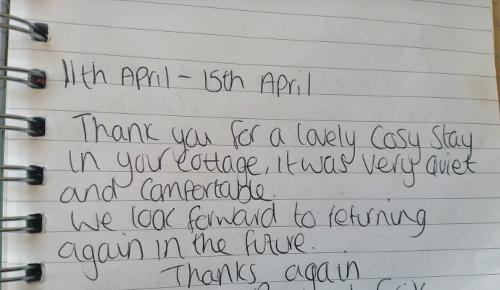 11th April - 15th April
Thank you for a lovely cosy stay
in your cottage, it was very quiet
and comfertable.
We look forward to returning
again in the future.
Thanks again